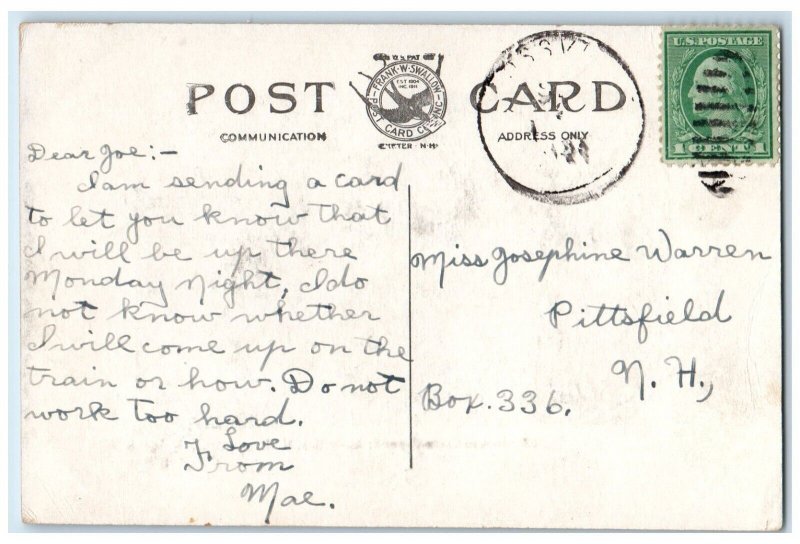 POST CARD
FRANK·W·SWALLOW
EST 1904
INC. 1911
POST CARD CO. INC.
EXETER N·H·
COMMUNICATION
ADDRESS ONLY
U.S. POSTAGE
1 CENT 1
Dear Joe:-
I am sending a card
to let you know that
I will be up there
Monday night, I do
not know whether
I will come up on the
train or how. Do not
work too hard.
Love
From
Mae.
Miss Josephine Warren
Pittsfield
N. H.,
Box. 336.